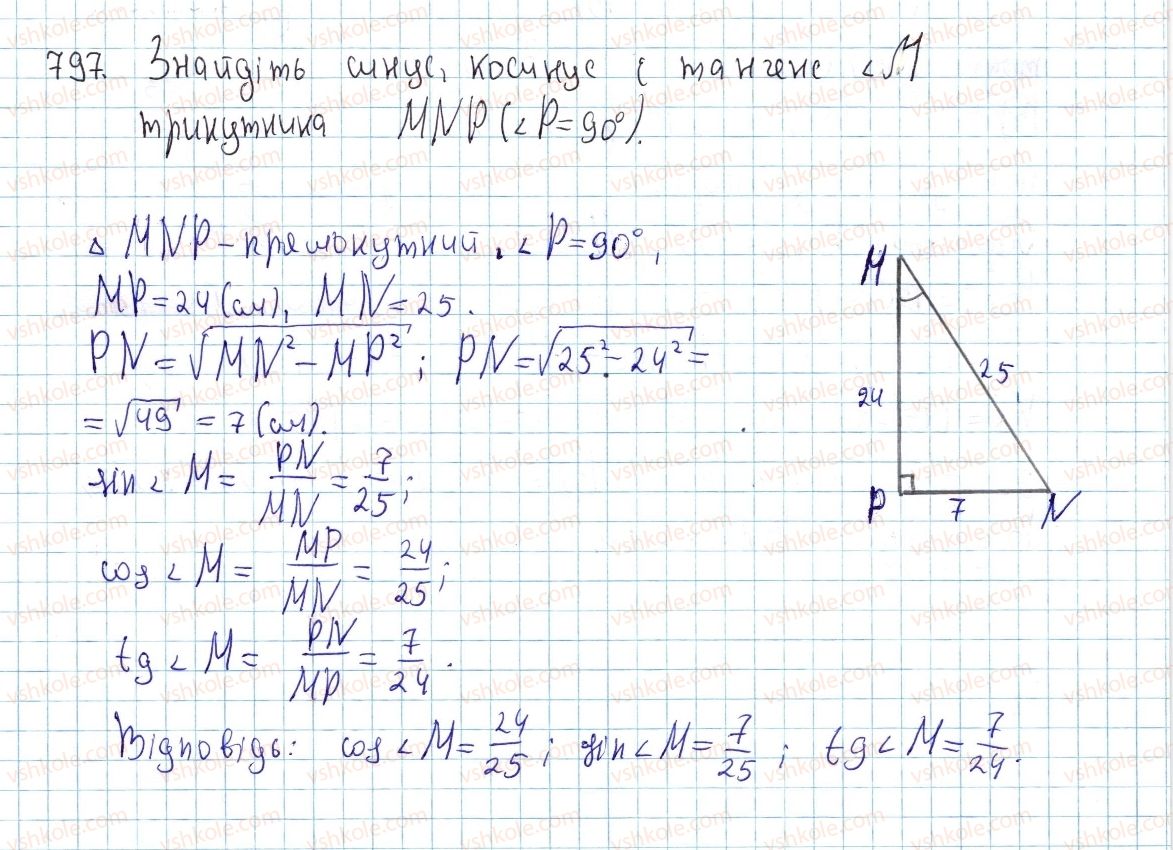 797. Знайдіть синус, косинус і тангенс <M
трикутника MNP (<P=90°).
△ MNP - прямокутний, <P=90°,
MP=24 (см), MN=25.
PN=√MN²-MP²; PN=√25²-24²=
=√49=7 (см).
sin<M=PN/MN=7/25;
cos<M=MP/MN=24/25;
tg<M=PN/MP=7/24.
Відповідь: cos<M=24/25; sin<M=7/25; tg<M=7/24.
M
24
25
P
7
N
vshkole.com